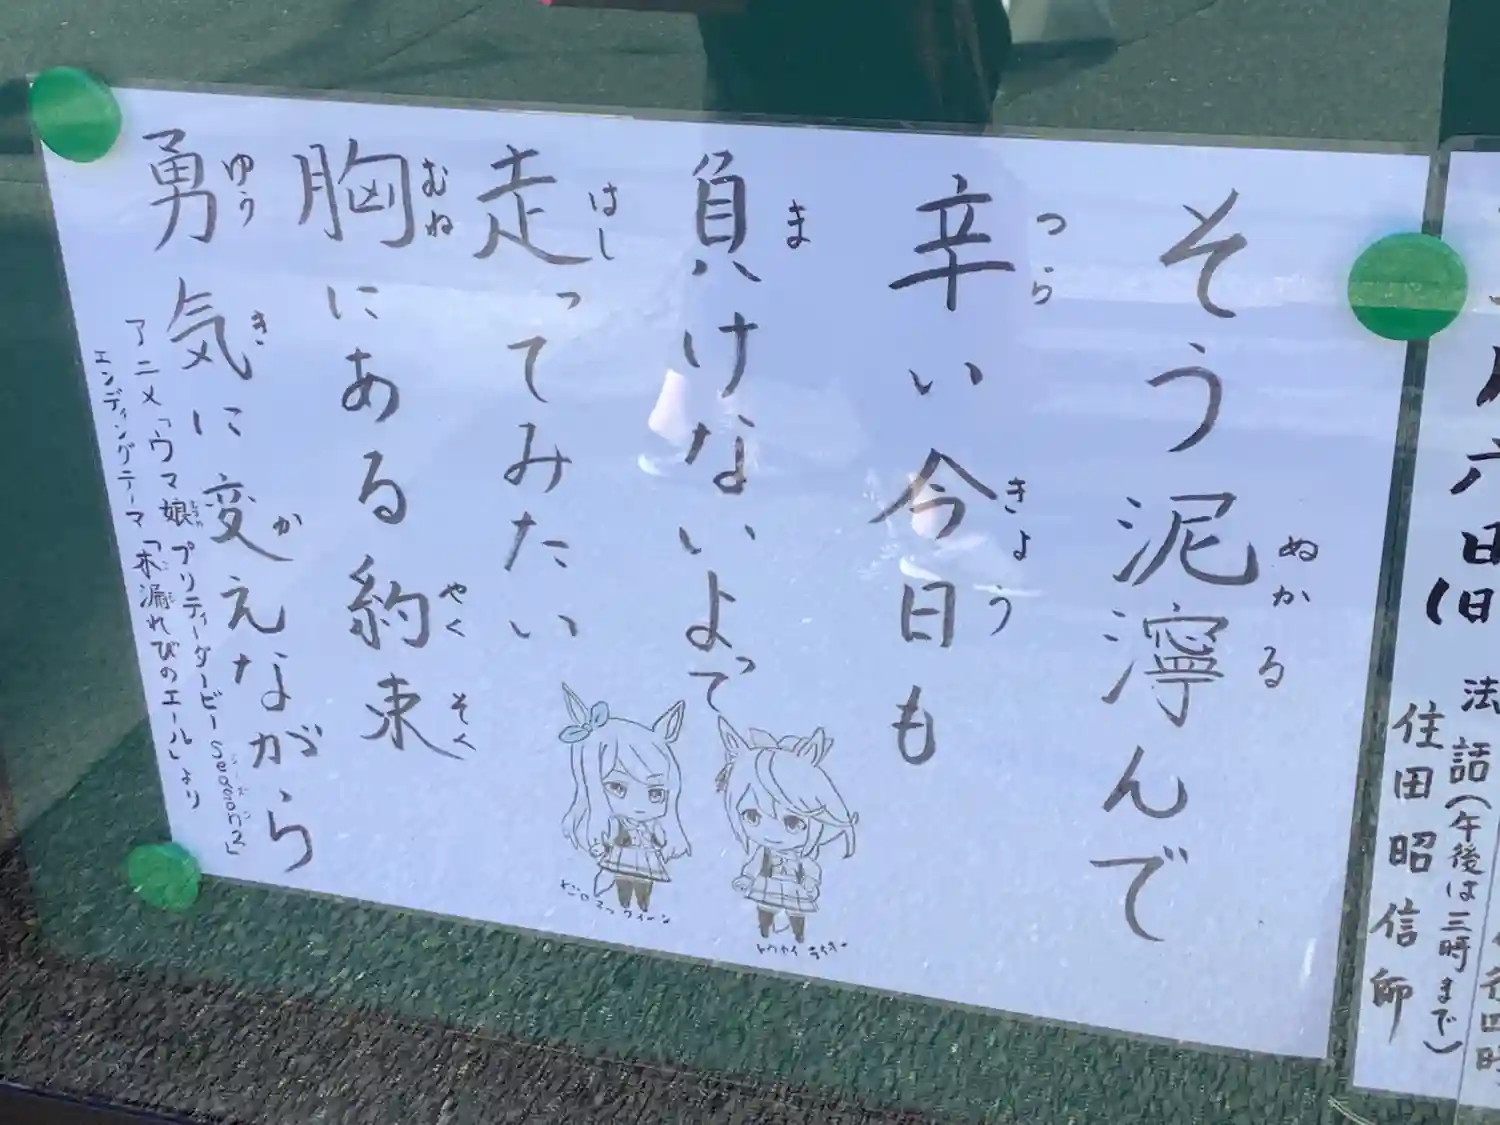 そう泥濘んで
ぬかる
辛い今日も
つら
きょう
負けないよって
ま
走ってみたい
はし
胸にある約束
むね
やくそく
勇気に変えながら
ゆうき
か
アニメ「ウマ娘 プリティーダービー Season2」
エンディングテーマ「木漏れびのエール」より
メジロマックイーン
トウカイテイオー
六日(日
法話(午後は三時まで)
住田昭信師